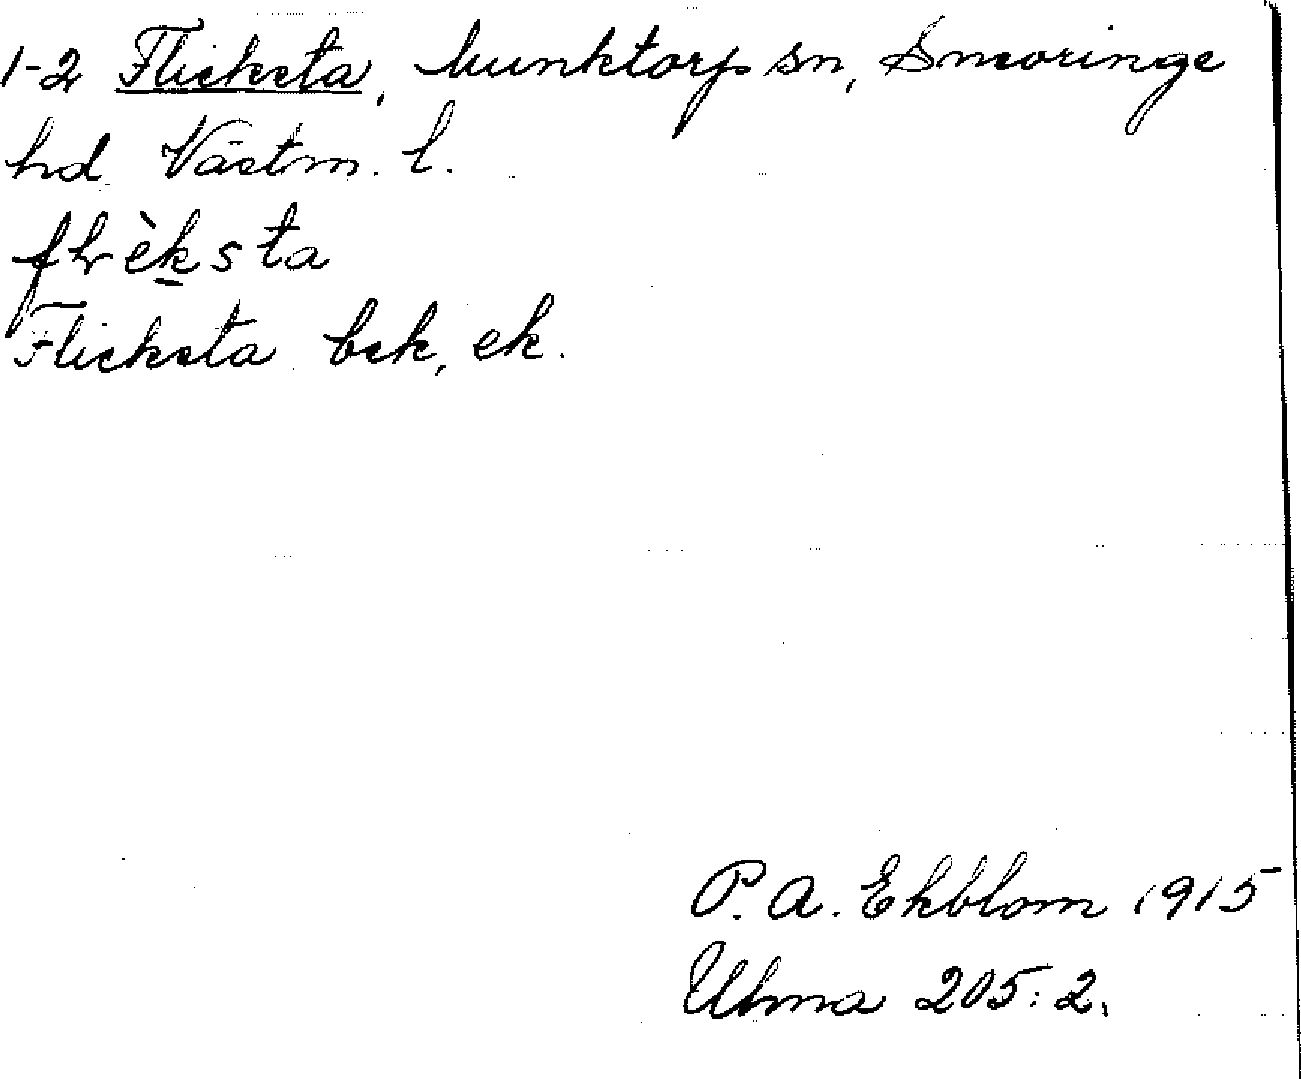 1-2 Flicksta, Munktorp sn, Snevringe
hd Västm. l.
flèksta
Flicksta bck, ek.
P. A. Ekblom 1915
Ulma 205:2.